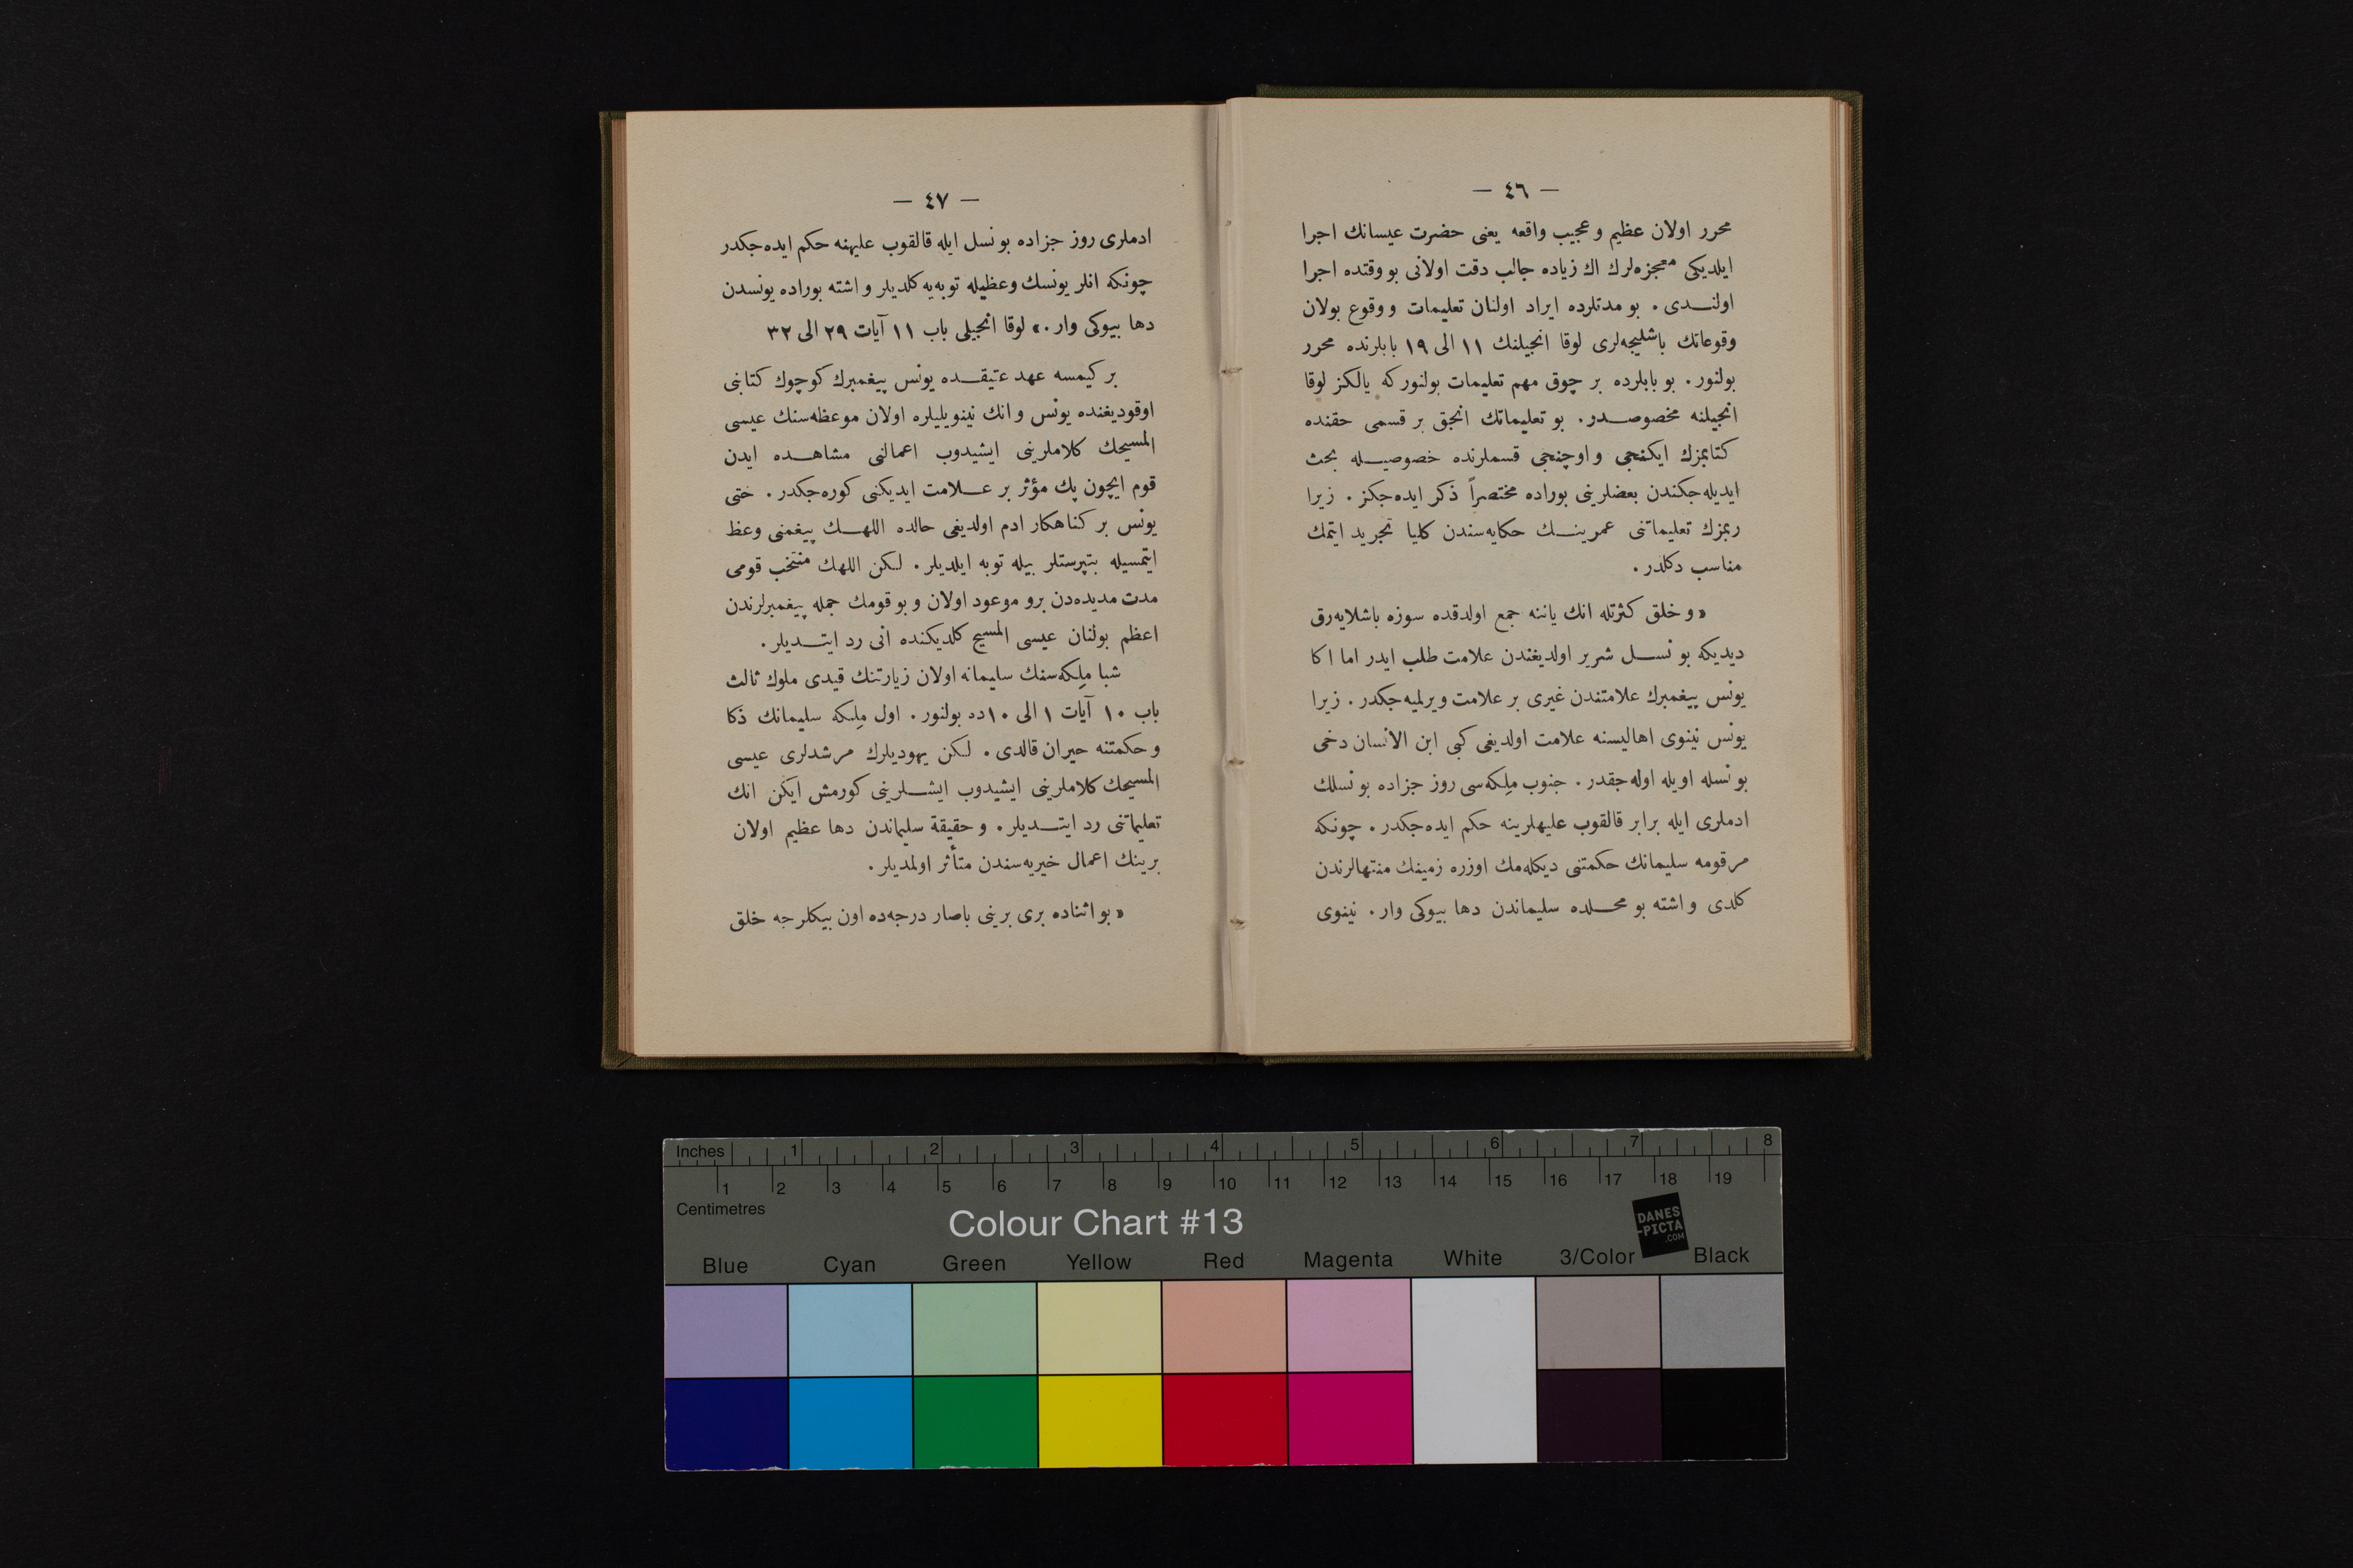 — ٤٦ —
محرر اولان عظیم و عجیب واقعه یعنی حضرت عیسانك اجرا
ایلدیکی معجزه‌لرك اك زیاده جالب دقت اولانی بو وقتده اجرا
اولنـدی . بو مدتلرده ایراد اولنان تعلیمات و وقوع بولان
وقوعاتك باشلیجه‌لری لوقا انجیلنك ١١ الی ١٩ بابلرنده محرر
بولنور . بو بابلرده بر چوق مهم تعلیمات بولنور که یالکز لوقا
انجیلنه مخصوصـدر . بو تعلیماتك انجق بر قسمی حقنده
کتابمزك ایکنجی و اوچنجی قسملرنده خصوصیـله بحث
ایدیله‌جکندن بعضلرینی بوراده مختصراً ذکر ایده‌جکز . زیرا
ربمزك تعلیماتنی عمرینـك حکایه‌سندن کلیا تجرید ایتمك
مناسب دکلدر .
« و خلق کثرتله انك یاننه جمع اولدقده سوزه باشلایه‌رق
دیدیکه بو نسـل شریر اولدیغندن علامت طلب ایدر اما اکا
یونس پیغمبرك علامتندن غیری بر علامت ویرلمیه‌جکدر . زیرا
یونس نینوی اهالیسنه علامت اولدیغی کبی ابن الانسان دخی
بو نسله اویله اوله‌جقدر . جنوب ملکه‌سی روز جزاده بو نسلك
ادملری ایله برابر قالقوب علیهلرینه حکم ایده‌جکدر . چونکه
مرقومه سلیمانك حکمتنی دیکله‌مك اوزره زمینك منتهالرندن
کلدی و اشته بو محـلده سلیماندن دها بیوکی وار . نینوی
— ٤٧ —
ادملری روز جزاده بو نسل ایله قالقوب علیهنه حکم ایده‌جکدر
چونکه انلر یونسك وعظیله توبه‌یه کلدیلر و اشته بوراده یونسدن
دها بیوکی وار . » لوقا انجیلی باب ١١ آیات ٢٩ الی ٣٢
بر کیمسه عهد عتیقـده یونس پیغمبرك کوچوك کتابنی
اوقودیغنده یونس و انك نینویلیلره اولان موعظه‌سنك عیسی
المسیحك کلاملرینی ایشیدوب اعمالنی مشاهـده ایدن
قوم ایچون پك مؤثر بر عـلامت ایدیکنی کوره‌جکدر . حتی
یونس بر کناهکار ادم اولدیغی حالده اللهـك پیغمنی وعظ
ایتمسیله بتپرستلر بیله توبه ایلدیلر . لکن اللهك منتخب قومی
مدت مدیده‌دن برو موعود اولان و بو قومك جمله پیغمبرلرندن
اعظم بولنان عیسی المسیح کلدیکنده انی رد ایتـدیلر .
شبا ملکه‌سنك سلیمانه اولان زیارتنك قیدی ملوك ثالث
باب ١٠ آیات ١ الی ١٠ده بولنور . اول ملکه سلیمانك ذکا
و حکمتنه حیران قالدی . لکن یهودیلرك مرشدلری عیسی
المسیحك کلاملرینی ایشیدوب ایشـلرینی کورمش ایکن انك
تعلیماتنی رد ایتـدیلر . و حقیقة سلیماندن دها عظیم اولان
برینك اعمال خیریه‌سندن متأثر اولمدیلر .
« بو اثناده بری برینی باصار درجه‌ده اون بیکلرجه خلق
Inches 1 2 3 4 5 6 7 8
1 2 3 4 5 6 7 8 9 10 11 12 13 14 15 16 17 18 19
Centimetres
Colour Chart #13
DANES
-PICTA
.COM
Blue Cyan Green Yellow Red Magenta White 3/Color Black